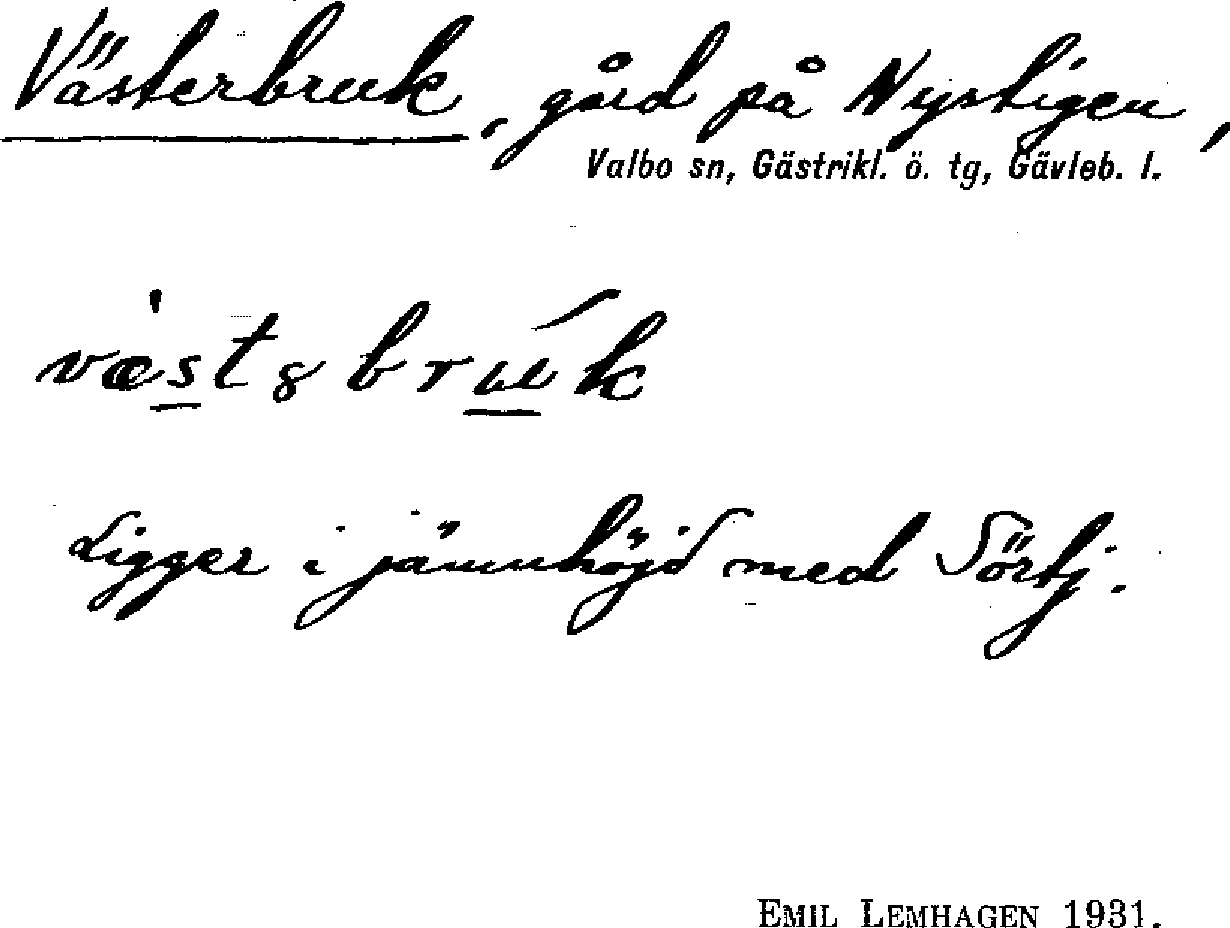 Västerbruk, gård på Nystigen,
Valbo sn, Gästrikl. ö. tg, Gävleb. l.
Ligger i jämnhöjd med Sörbj.
EMIL LEMHAGEN 1931.